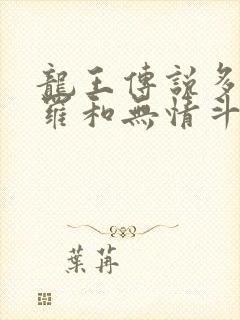 龍王傳說多
羅和無情斗
葉苒